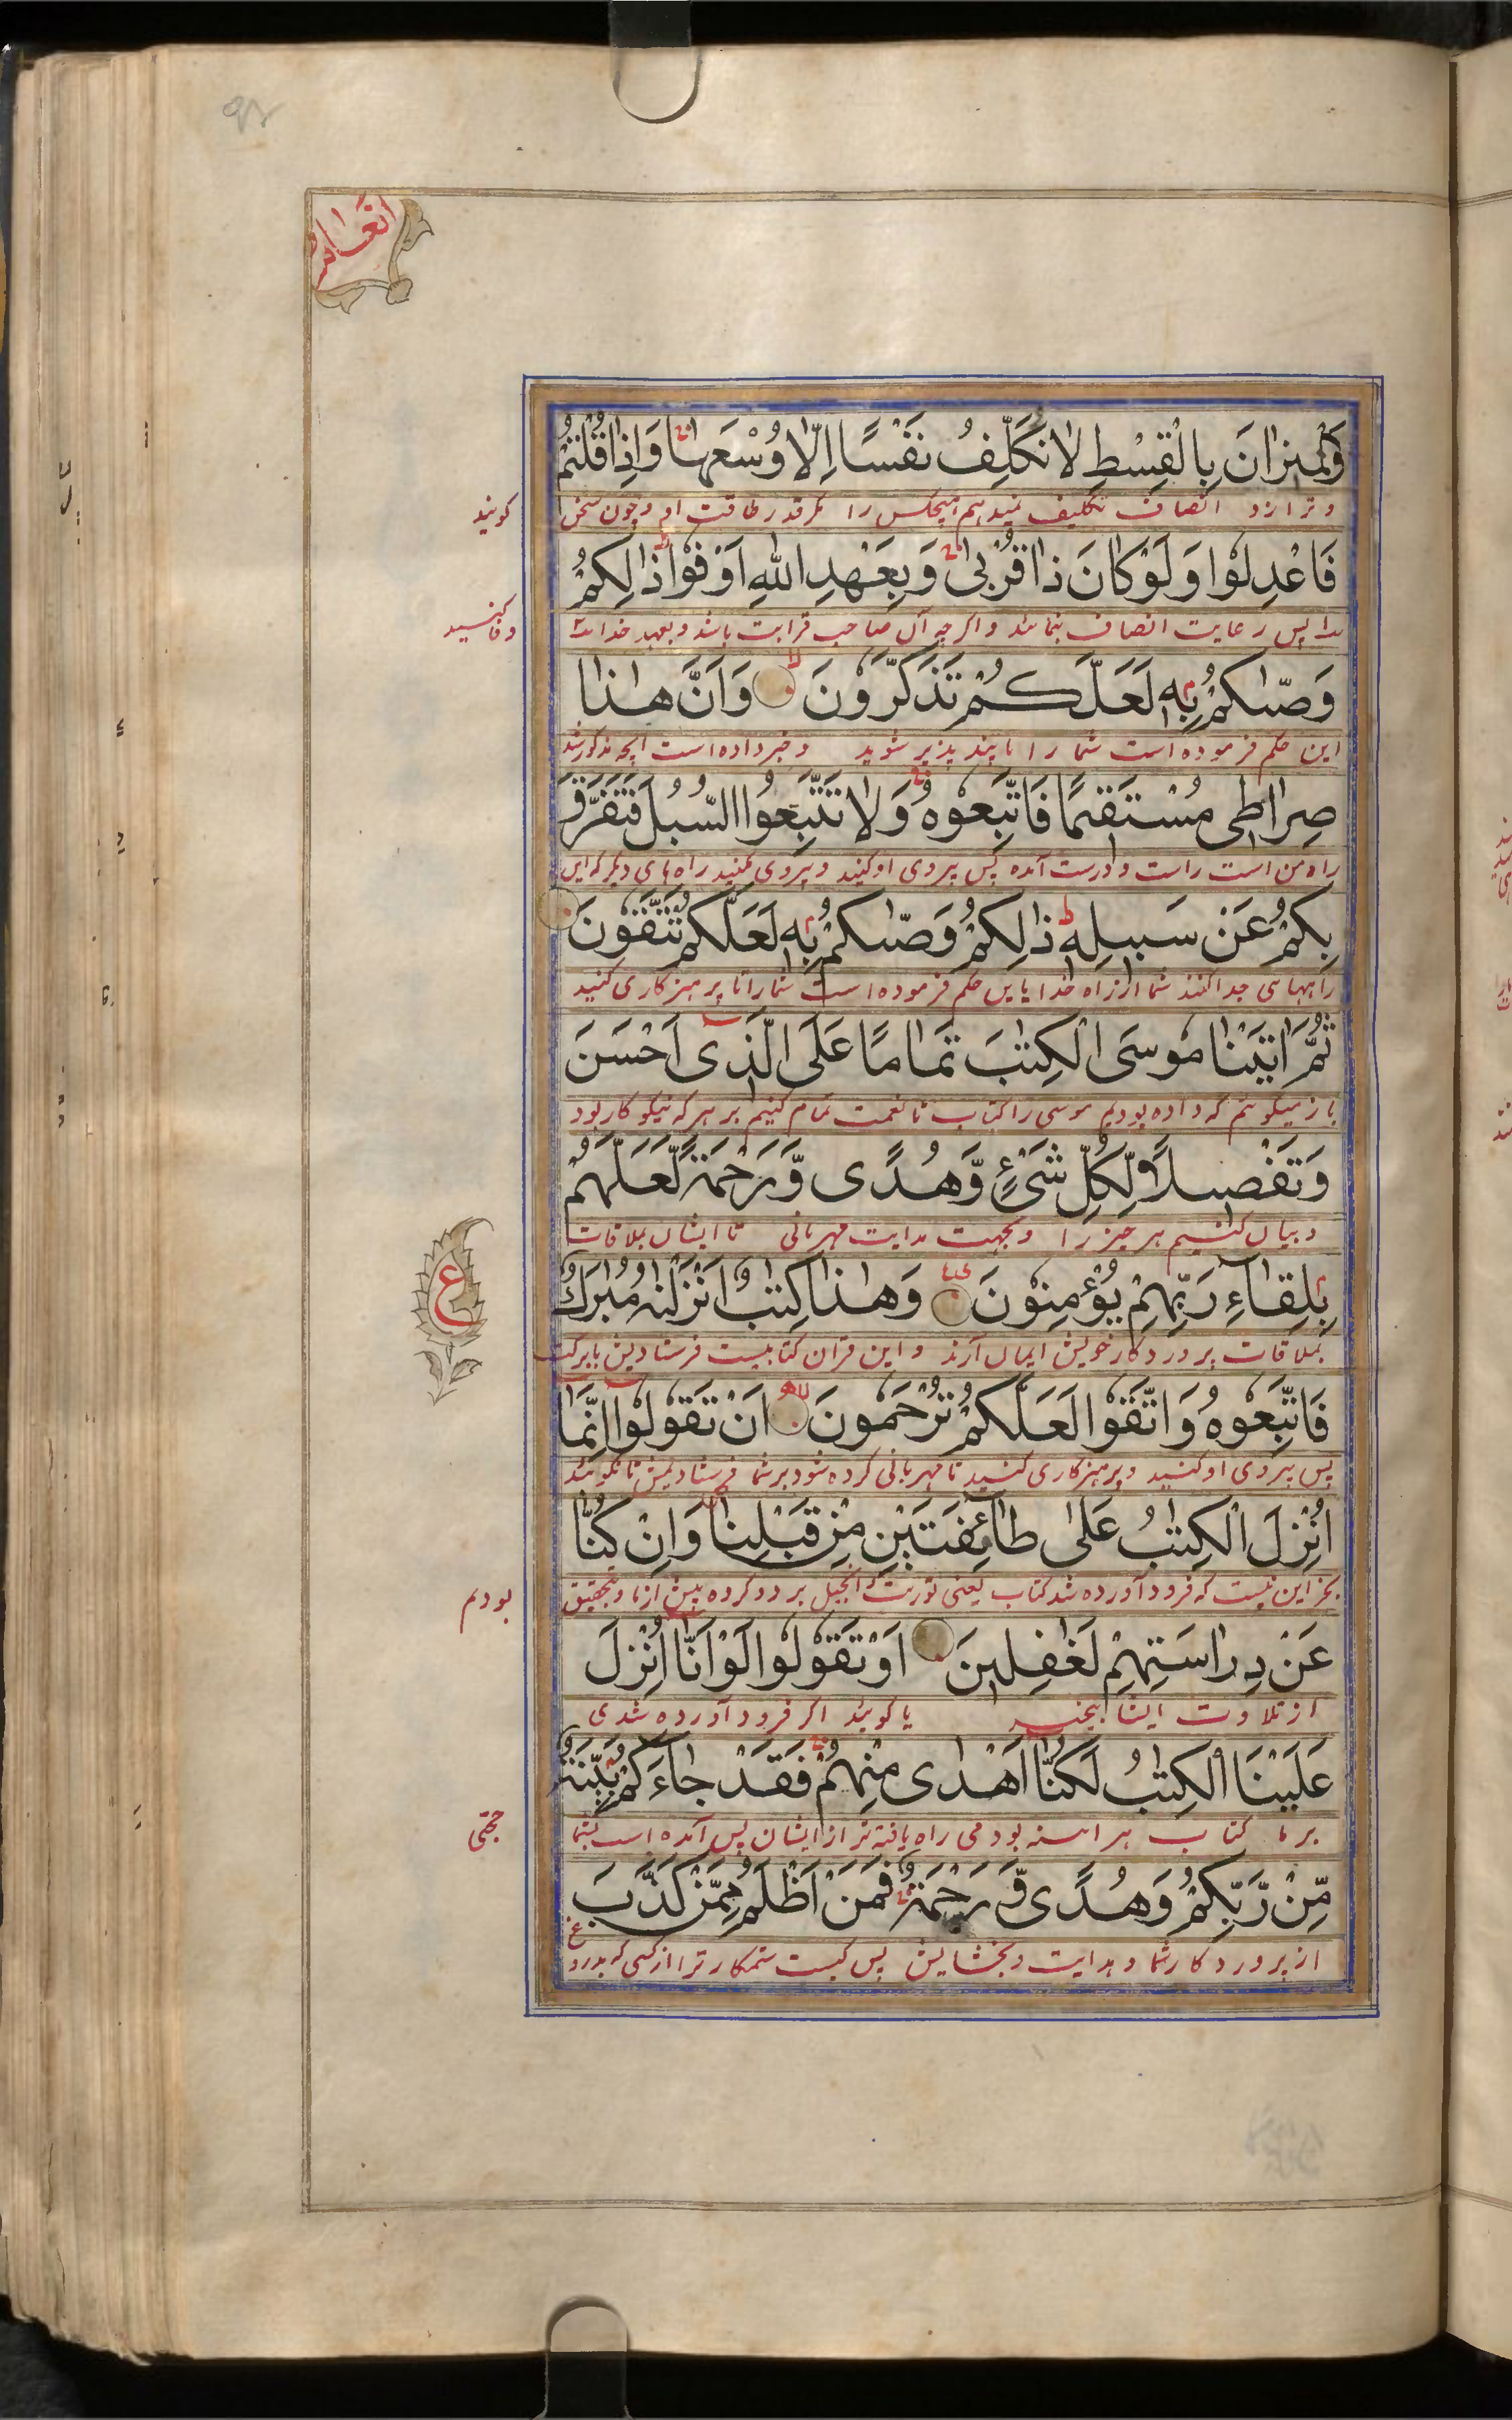 انعام
وَالْمِيْزَانَ بِالْقِسْطِ لَا نُكَلِّفُ نَفْسًا اِلَّا وُسْعَهَا وَاِذَا قُلْتُمْ
و ترازو انصاف تکلیف نمیدهیم هیچکس را مگر قدر طاقت او و چون سخن
کویند
فَاعْدِلُوْا وَلَوْ كَانَ ذَا قُرْبٰى وَبِعَهْدِ اللّٰهِ اَوْفُوْا ذٰلِكُمْ
پس رعایت انصاف نمائید و اکرچه آن صاحب قرابت باشد و بعهد خدا
وفا کنید
وَصّٰىكُمْ بِهٖ لَعَلَّكُمْ تَذَكَّرُوْنَ وَاَنَّ هٰذَا
این حکم فرموده است شما را تا پند پذیر شوید و خبر داده است آنچه مذکور شد
صِرَاطِيْ مُسْتَقِيْمًا فَاتَّبِعُوْهُ وَلَا تَتَّبِعُوا السُّبُلَ فَتَفَرَّقَ
راه من است راست و درست آمده پس پیروی او کنید و پیروی مکنید راه های دیکر که این
بِكُمْ عَنْ سَبِيْلِهٖ ذٰلِكُمْ وَصّٰىكُمْ بِهٖ لَعَلَّكُمْ تَتَّقُوْنَ
راهها جدا کنند شما از راه خدا باین حکم فرموده است شما را تا پرهیزکاری کنید
ثُمَّ اٰتَيْنَا مُوْسَى الْكِتٰبَ تَمَامًا عَلَى الَّذِيْ اَحْسَنَ
باز میکوئیم که داده بودیم موسی را کتاب تا نعمت تمام کنیم بر هر که نیکو کار بود
وَتَفْصِيْلًا لِّكُلِّ شَيْءٍ وَّهُدًى وَّرَحْمَةً لَّعَلَّهُمْ
و بیان کنیم هر چیز را و بجهت هدایت مهربانی تا ایشان بملاقات
بِلِقَآءِ رَبِّهِمْ يُؤْمِنُوْنَ وَهٰذَا كِتٰبٌ اَنْزَلْنٰهُ مُبٰرَكٌ
ع
بملاقات پروردکار خویش ایمان آرند و این قران کتابیست فرستادیمش با برکت
فَاتَّبِعُوْهُ وَاتَّقُوْا لَعَلَّكُمْ تُرْحَمُوْنَ اَنْ تَقُوْلُوْا اِنَّمَا
پس پیروی او کنید و پرهیزکاری کنید تا مهربانی کرده شود بر شما فرستادیمش تا نکوئید
اُنْزِلَ الْكِتٰبُ عَلٰى طَآئِفَتَيْنِ مِنْ قَبْلِنَا وَاِنْ كُنَّا
بجز این نیست که فرود آورده شد کتاب یعنی توریت و انجیل بر دو کروه پیش از ما و بتحقیق
بودیم
عَنْ دِرَاسَتِهِمْ لَغٰفِلِيْنَ اَوْ تَقُوْلُوْا لَوْ اَنَّا اُنْزِلَ
از تلاوت ایشا بیخبر یا کوئید اکر فرود آورده شدی
عَلَيْنَا الْكِتٰبُ لَكُنَّا اَهْدٰى مِنْهُمْ فَقَدْ جَآءَكُمْ بَيِّنَةٌ
بر ما کتاب هر آینه بودمی راه یافته تر از ایشان پس آمده است بشما
حجتی
مِّنْ رَّبِّكُمْ وَهُدًى وَّرَحْمَةٌ فَمَنْ اَظْلَمُ مِمَّنْ كَذَّبَ
از پروردکار شما و هدایت و بخشایش پس کیست ستمکار تر از کسی که بدروغ